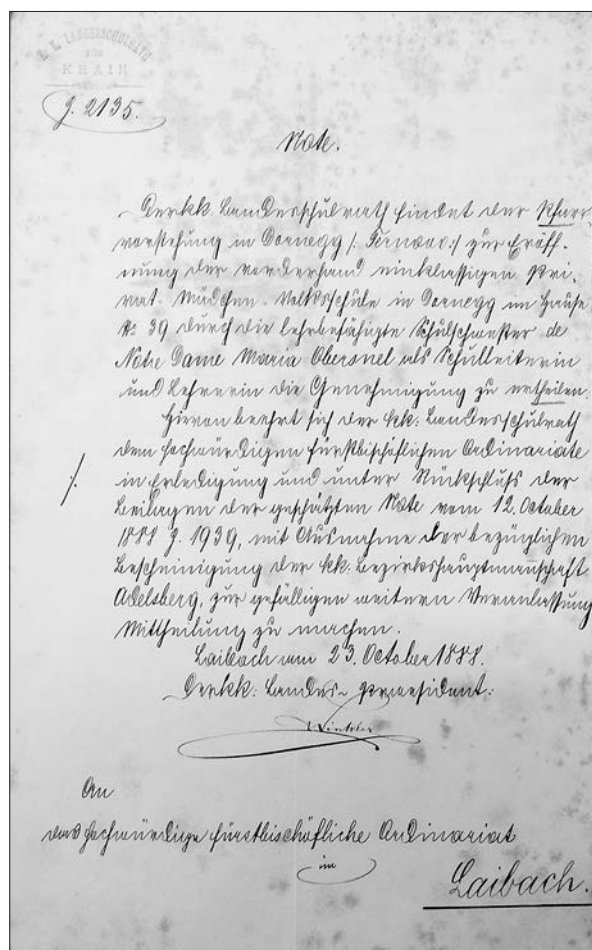 K. K. LANDESSCHULRATH
FÜR
KRAIN
Z. 2135.
Note.
Der kk. Landesschulrath findet der Pfarr-
vorstehung in Dornegg /: Ternovo :/ zur Eröff-
nung der vorderhand einklassigen Pri-
vat-Mädchen-Volksschule in Dornegg im Hause
Nr. 39 durch die lehrbefähigte Schulschwester de
Notre Dame Maria Obersnel als Schulleiterin
und Lehrerin die Genehmigung zu ertheilen.
Hievon beehrt sich der kk. Landesschulrath
dem hochwürdigen fürstbischöflichen Ordinariate
in Erledigung und unter Rückschluß der
Beilagen der geschätzten Note vom 12. October
1888 Z. 1939, mit Ausnahme der bezüglichen
Bescheinigung der kk. Bezirkshauptmannschaft
Adelsberg, zur gefälligen weitern Veranlassung
Mittheilung zu machen.
Laibach am 23. October 1888.
Der kk. Landes-Praesident:
Winkler
An
das hochwürdige fürstbischöfliche Ordinariat
in
Laibach.